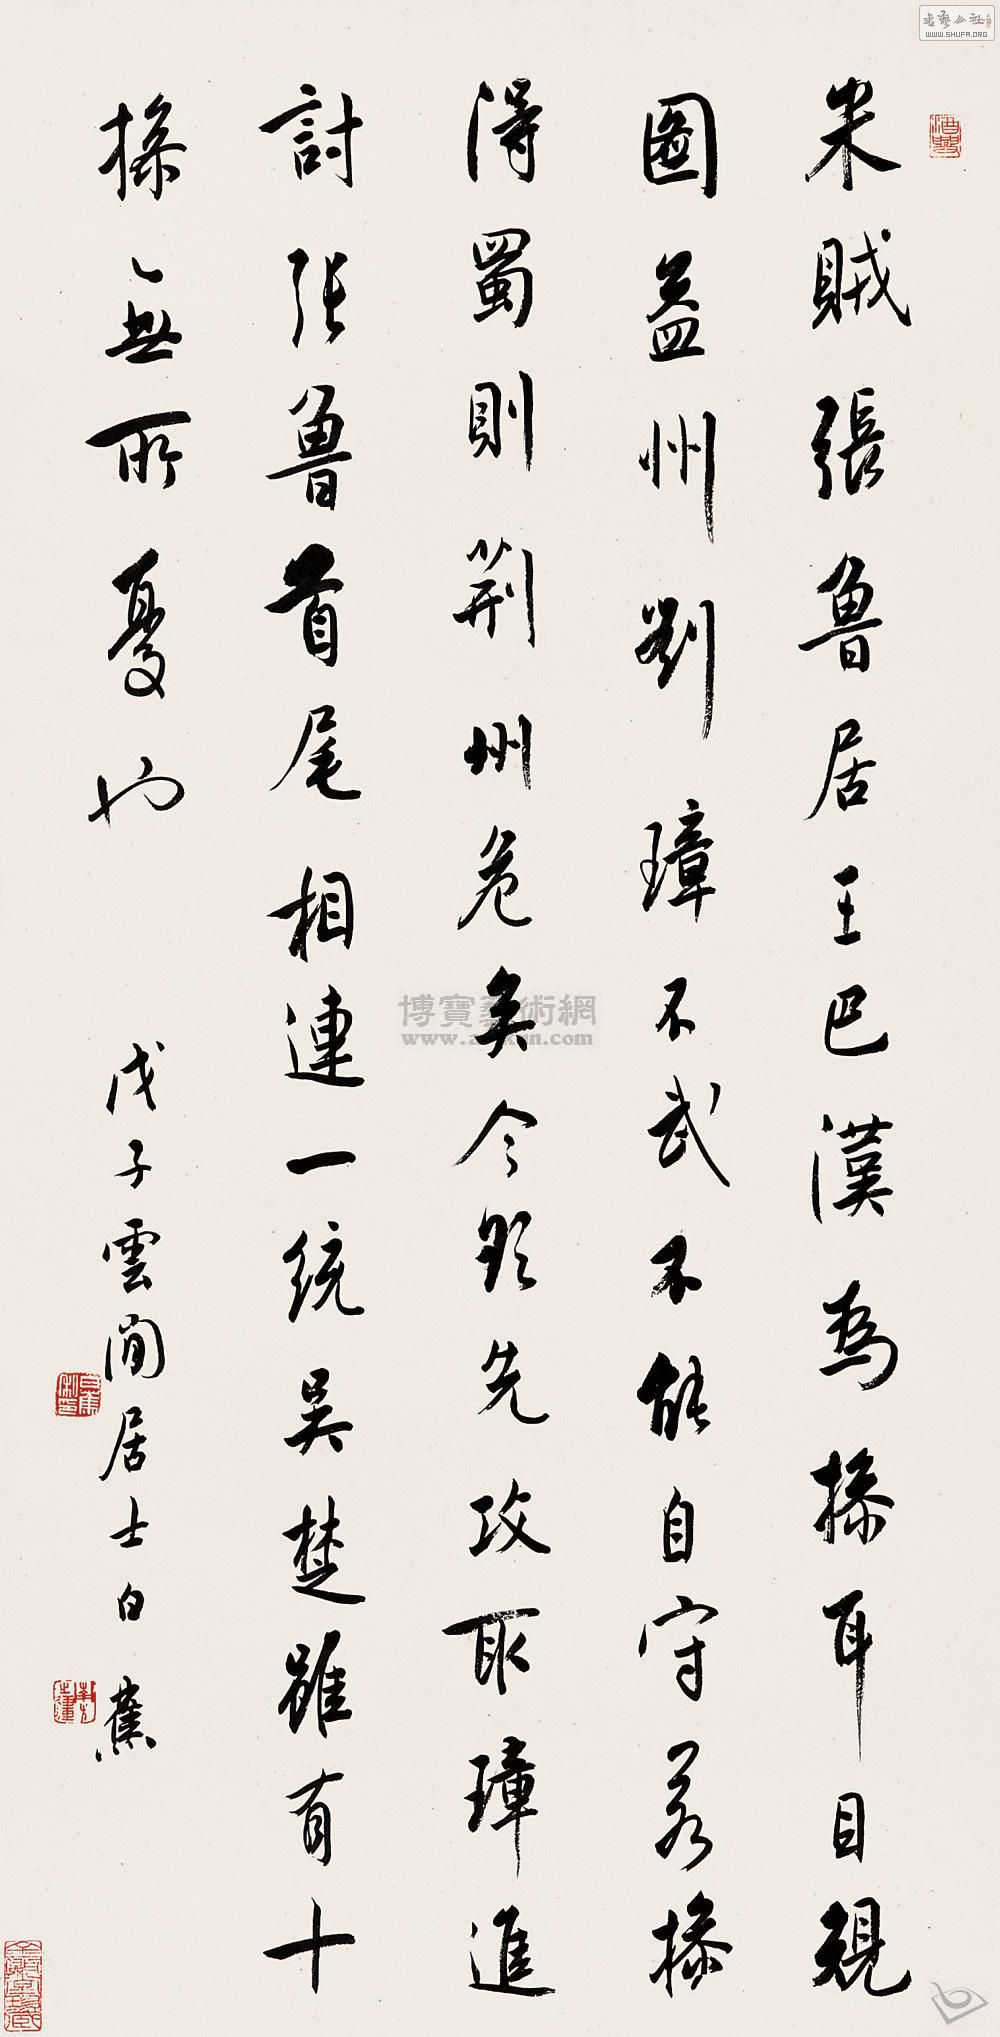 米賊張魯居王巴漢為操耳目規
圖益州劉璋不武不能自守若操
得蜀則荊州危矣今欲先攻取璋進
討張魯首尾相連一統吳楚雖有十
操無所憂也
戊子雲間居士白蕉
博寶藝術網
WWW.SHUFA.ORG